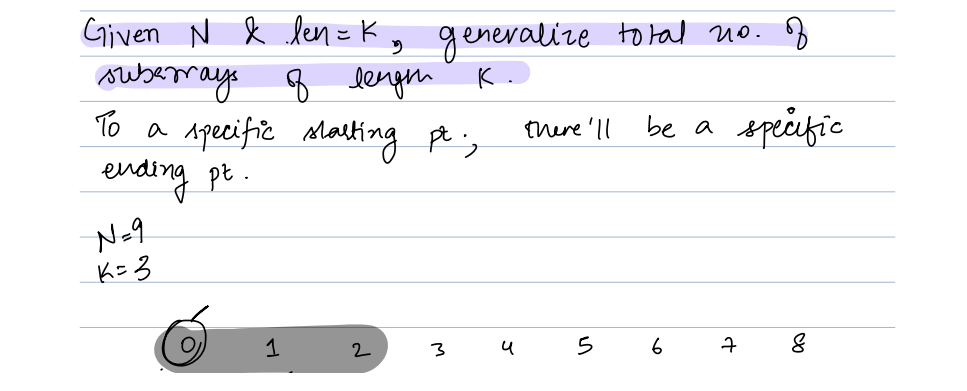 Given N & len = K, generalize total no. of
subarrays of length K.
To a specific starting pt; there'll be a specific
ending pt.
N=9
K=3
0 1 2 3 4 5 6 7 8